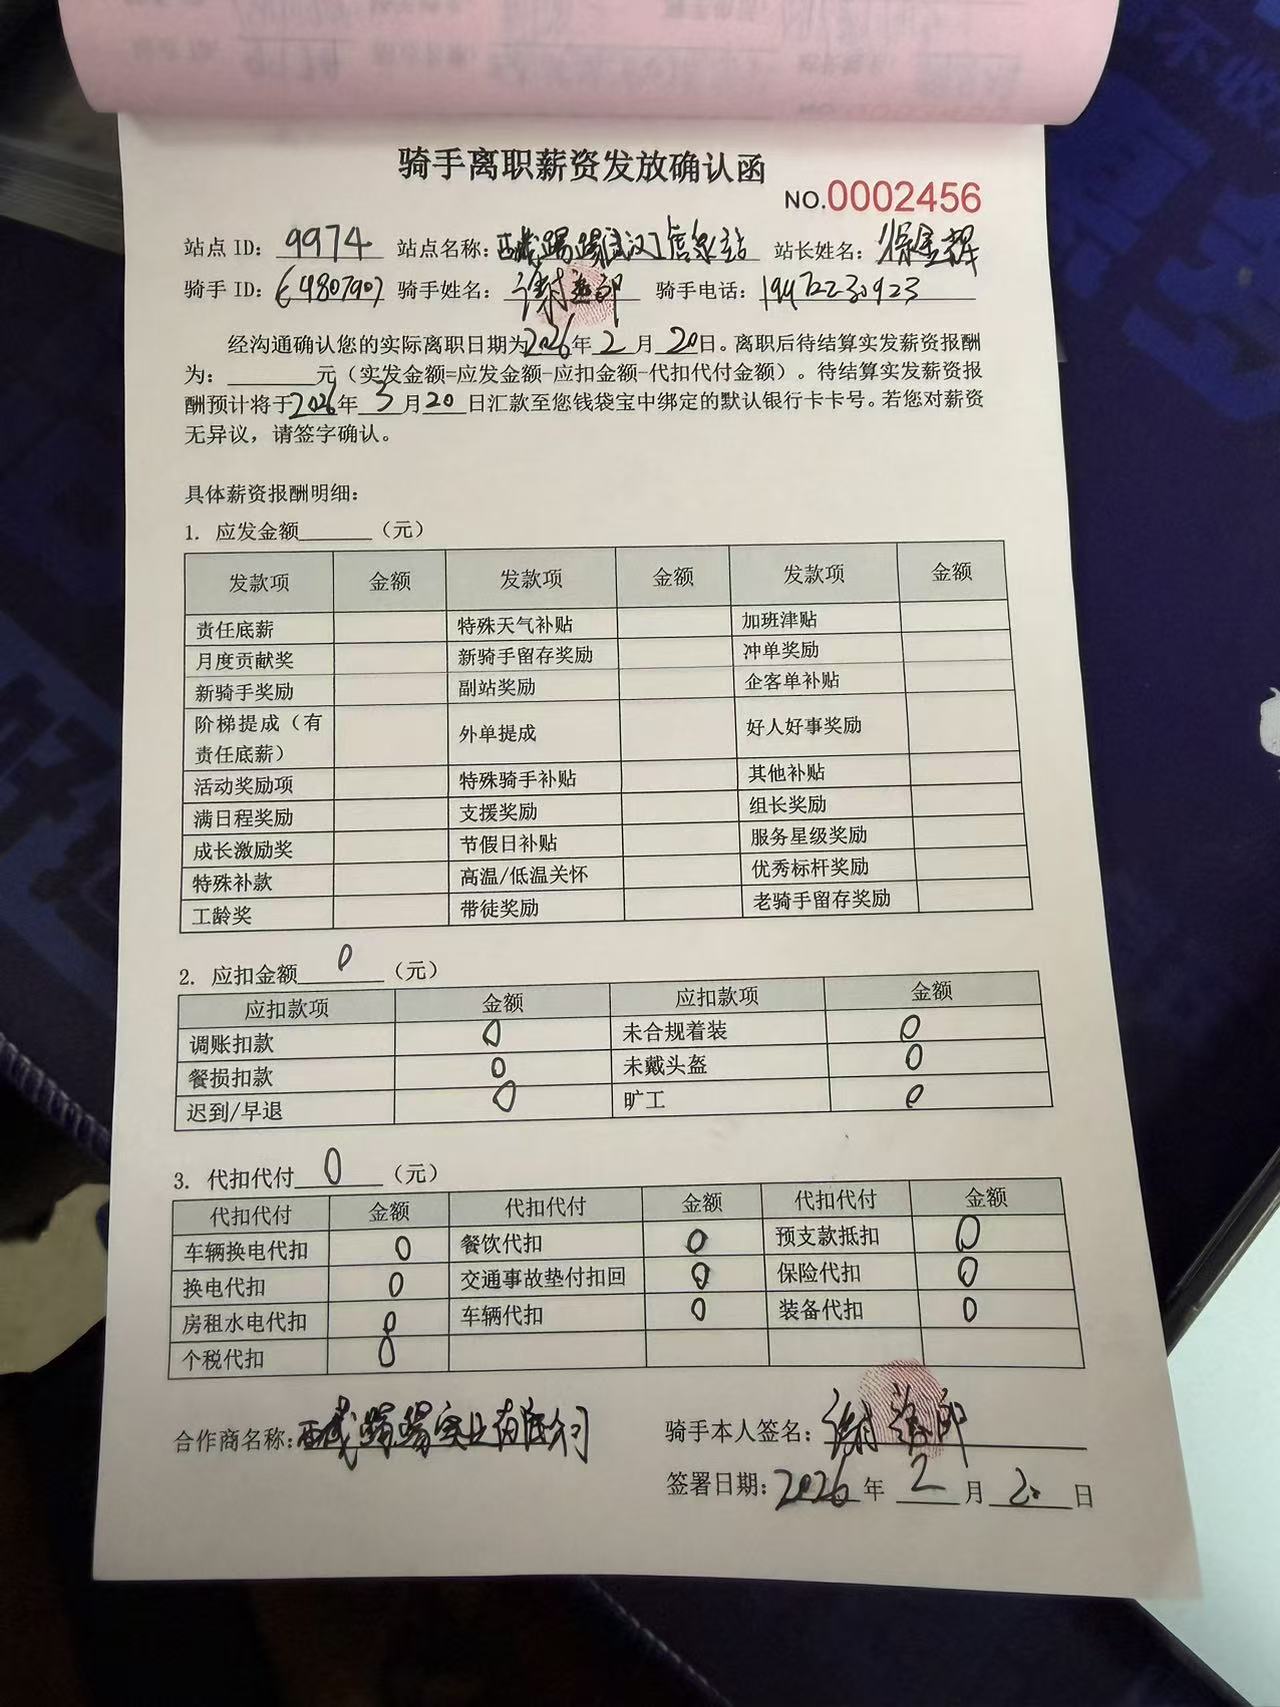 骑手离职薪资发放确认函
NO.0002456
站点 ID: 9974 站点名称: 西藏踢踢武汉 站 站长姓名: 徐金辉
骑手 ID: 骑手姓名: 谢 郎 骑手电话:
经沟通确认您的实际离职日期为2026年2月20日。离职后待结算实发薪资报酬
为: 元（实发金额=应发金额-应扣金额-代扣代付金额）。待结算实发薪资报
酬预计将于2026年3月20日汇款至您钱袋宝中绑定的默认银行卡卡号。若您对薪资
无异议，请签字确认。
具体薪资报酬明细:
1. 应发金额______（元）
发款项 金额 发款项 金额 发款项 金额
责任底薪 特殊天气补贴 加班津贴
月度贡献奖 新骑手留存奖励 冲单奖励
新骑手奖励 副站奖励 企客单补贴
阶梯提成（有
责任底薪） 外单提成 好人好事奖励
活动奖励项 特殊骑手补贴 其他补贴
满日程奖励 支援奖励 组长奖励
成长激励奖 节假日补贴 服务星级奖励
特殊补款 高温/低温关怀 优秀标杆奖励
工龄奖 带徒奖励 老骑手留存奖励
2. 应扣金额 0 （元）
应扣款项 金额 应扣款项 金额
调账扣款 0 未合规着装 0
餐损扣款 0 未戴头盔 0
迟到/早退 0 旷工 0
3. 代扣代付 0 （元）
代扣代付 金额 代扣代付 金额 代扣代付 金额
车辆换电代扣 0 餐饮代扣 0 预支款抵扣 0
换电代扣 0 交通事故垫付扣回 0 保险代扣 0
房租水电代扣 0 车辆代扣 0 装备代扣 0
个税代扣 0
合作商名称: 西藏踢踢实业有限公司 骑手本人签名: 谢 郎
签署日期: 2026 年 2 月 20 日